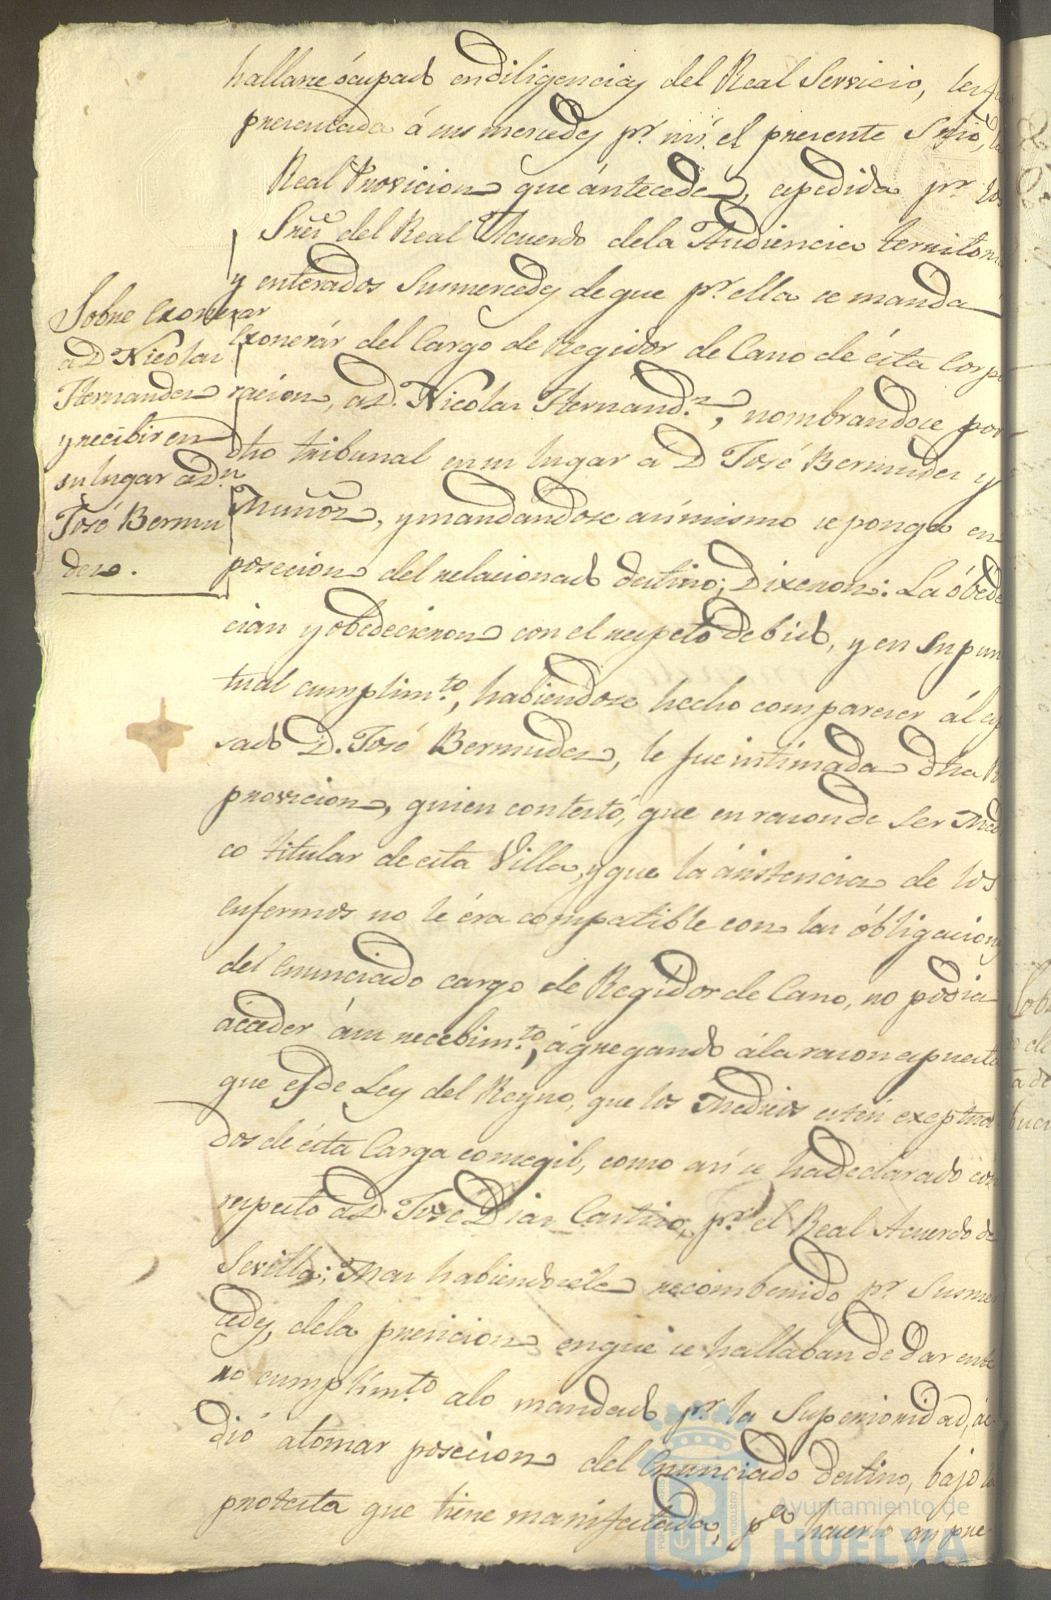 hallarse ócupado en diligencias del Real Servicio, les fu
presentada á sus mercedes pr. mi el presente Srio, la
Real Provicion que ántecede, espedida pr. los
Sres. del Real Acuerdo dela Audiencia territori
y enterados Susmercedes de que pr. ella se mandá
Exonerár del Cargo de Regidor de Cano de ésta Corpo
racion, a D. Nicolas Hernandz., nombrandose por
dho tribunal en su lugar á D José Bermudes y
Muñoz, y mandandose asimismo se ponga en
posecion del relacionado destino; Dixeron: La óbede
cian y obedecieron con el respeto debido, y en su pun
tual cumplimto., habiendose hecho comparecer ál es
sado D. José Bermudez, le fue intimada dha R
provicion, quien contestó, que en razon de ser Medi
co titular de esta Villa, y que la ásistencia de los
enfermos no le éra compatible con las óbligaciones
del enunciado cargo de Regidor de Cano, no podia
ácceder á su recebimto., ágregando á la razon espuesta
que es de Ley del Reyno, que los Medicos estén exeptua
dos de ésta Carga consegil, como asi se ha declarado con
respecto a D. José Diaz Castizo, pr. el Real Acuerdo de
Sevilla; Mas habiendosele recombenido pr. Susmer
cedes, dela presicion en que se hallaban de dar ente
ro cumplimto. a lo mandado pr. la Superioridad, ác
dió a tomar posecion del Enunciado destino, bajo la
protesta que tiene manifestada, pa. hacerlo asi pre
Sobre Exonerar
a D Nicolas
Hernandez
y recibir en
su lugar a Dn.
José Bermu
dez.
Ayuntamiento de
HUELVA